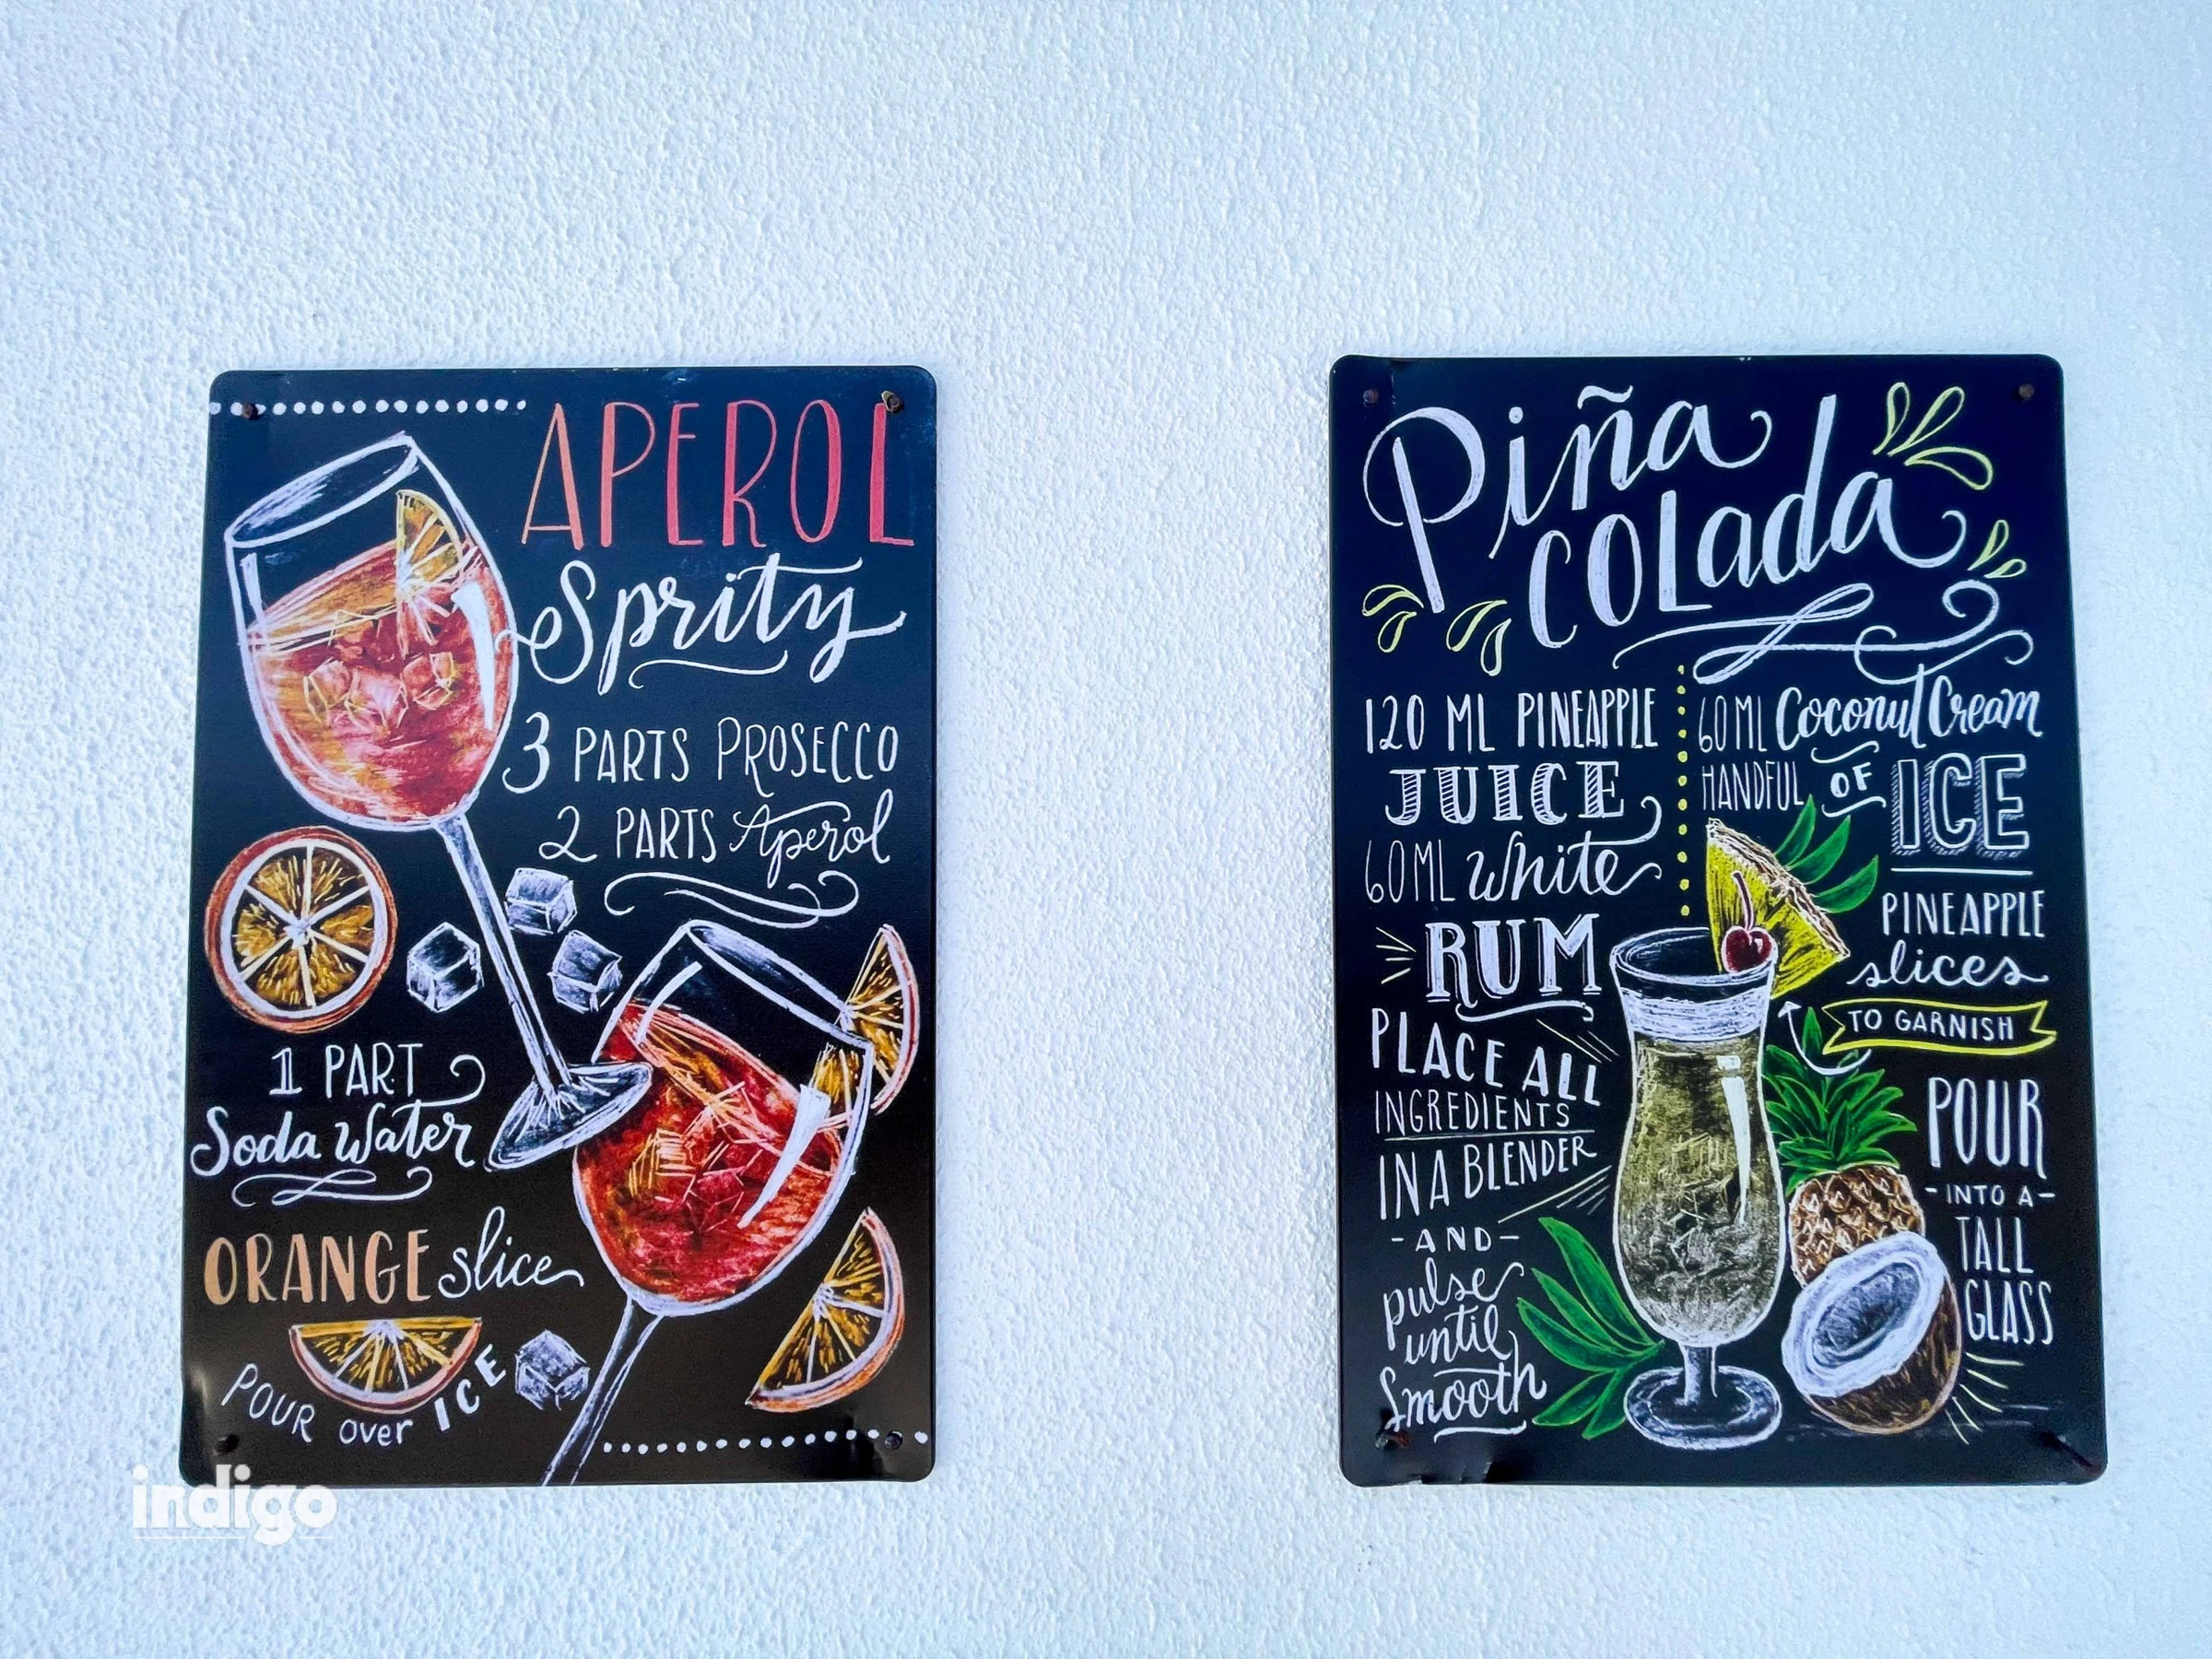 APEROL
Spritz
3 PARTS PROSECCO
2 PARTS Aperol
1 PART
Soda Water
ORANGE slice
POUR over ICE
Piña
COLada
120 ML PINEAPPLE
JUICE
60ML White
RUM
PLACE ALL
INGREDIENTS
IN A BLENDER
-AND-
pulse
until
Smooth
60ML Coconut Cream
HANDFUL OF ICE
PINEAPPLE
slices
TO GARNISH
POUR
-INTO A-
TALL
GLASS
indigo